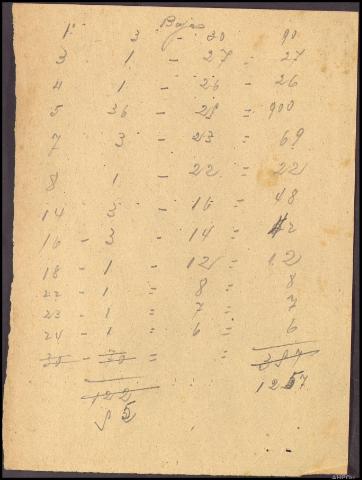 Bajas
1º 3 - 30 90
3 1 - 27 - 27
4 1 - 26 - 26
5 36 - 25 = 900
7 3 - 23 = 69
8 1 - 22 = 22
14 3 - 16 - 48
16 - 3 - 14 = 42
18 - 1 - 12 = 12
22 - 1 = 8 = 8
23 - 1 = 7 = 7
24 - 1 = 6 = 6
30 - 30 = =
1257
122